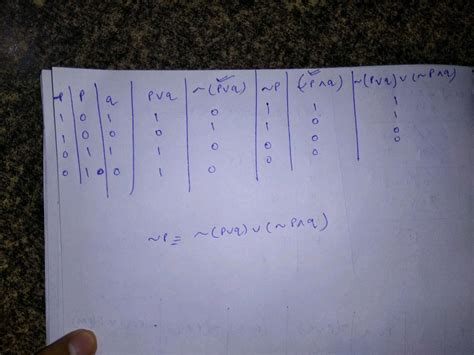 P | q | P∨q | ~(P∨q) | ~P | (~P∧q) | ~(P∨q)∨(~P∧q)
1 | 0 | 1 | 1 | 0 | 1 | 1 | 1
1 | 0 | 0 | 0 | 1 | 1 | 0 | 1
0 | 1 | 1 | 1 | 0 | 0 | 0 | 0
0 | 1 | 0 | 1 | 0 | 0 | 0 | 0
~P ≡ ~(P∨q)∨(~P∧q)